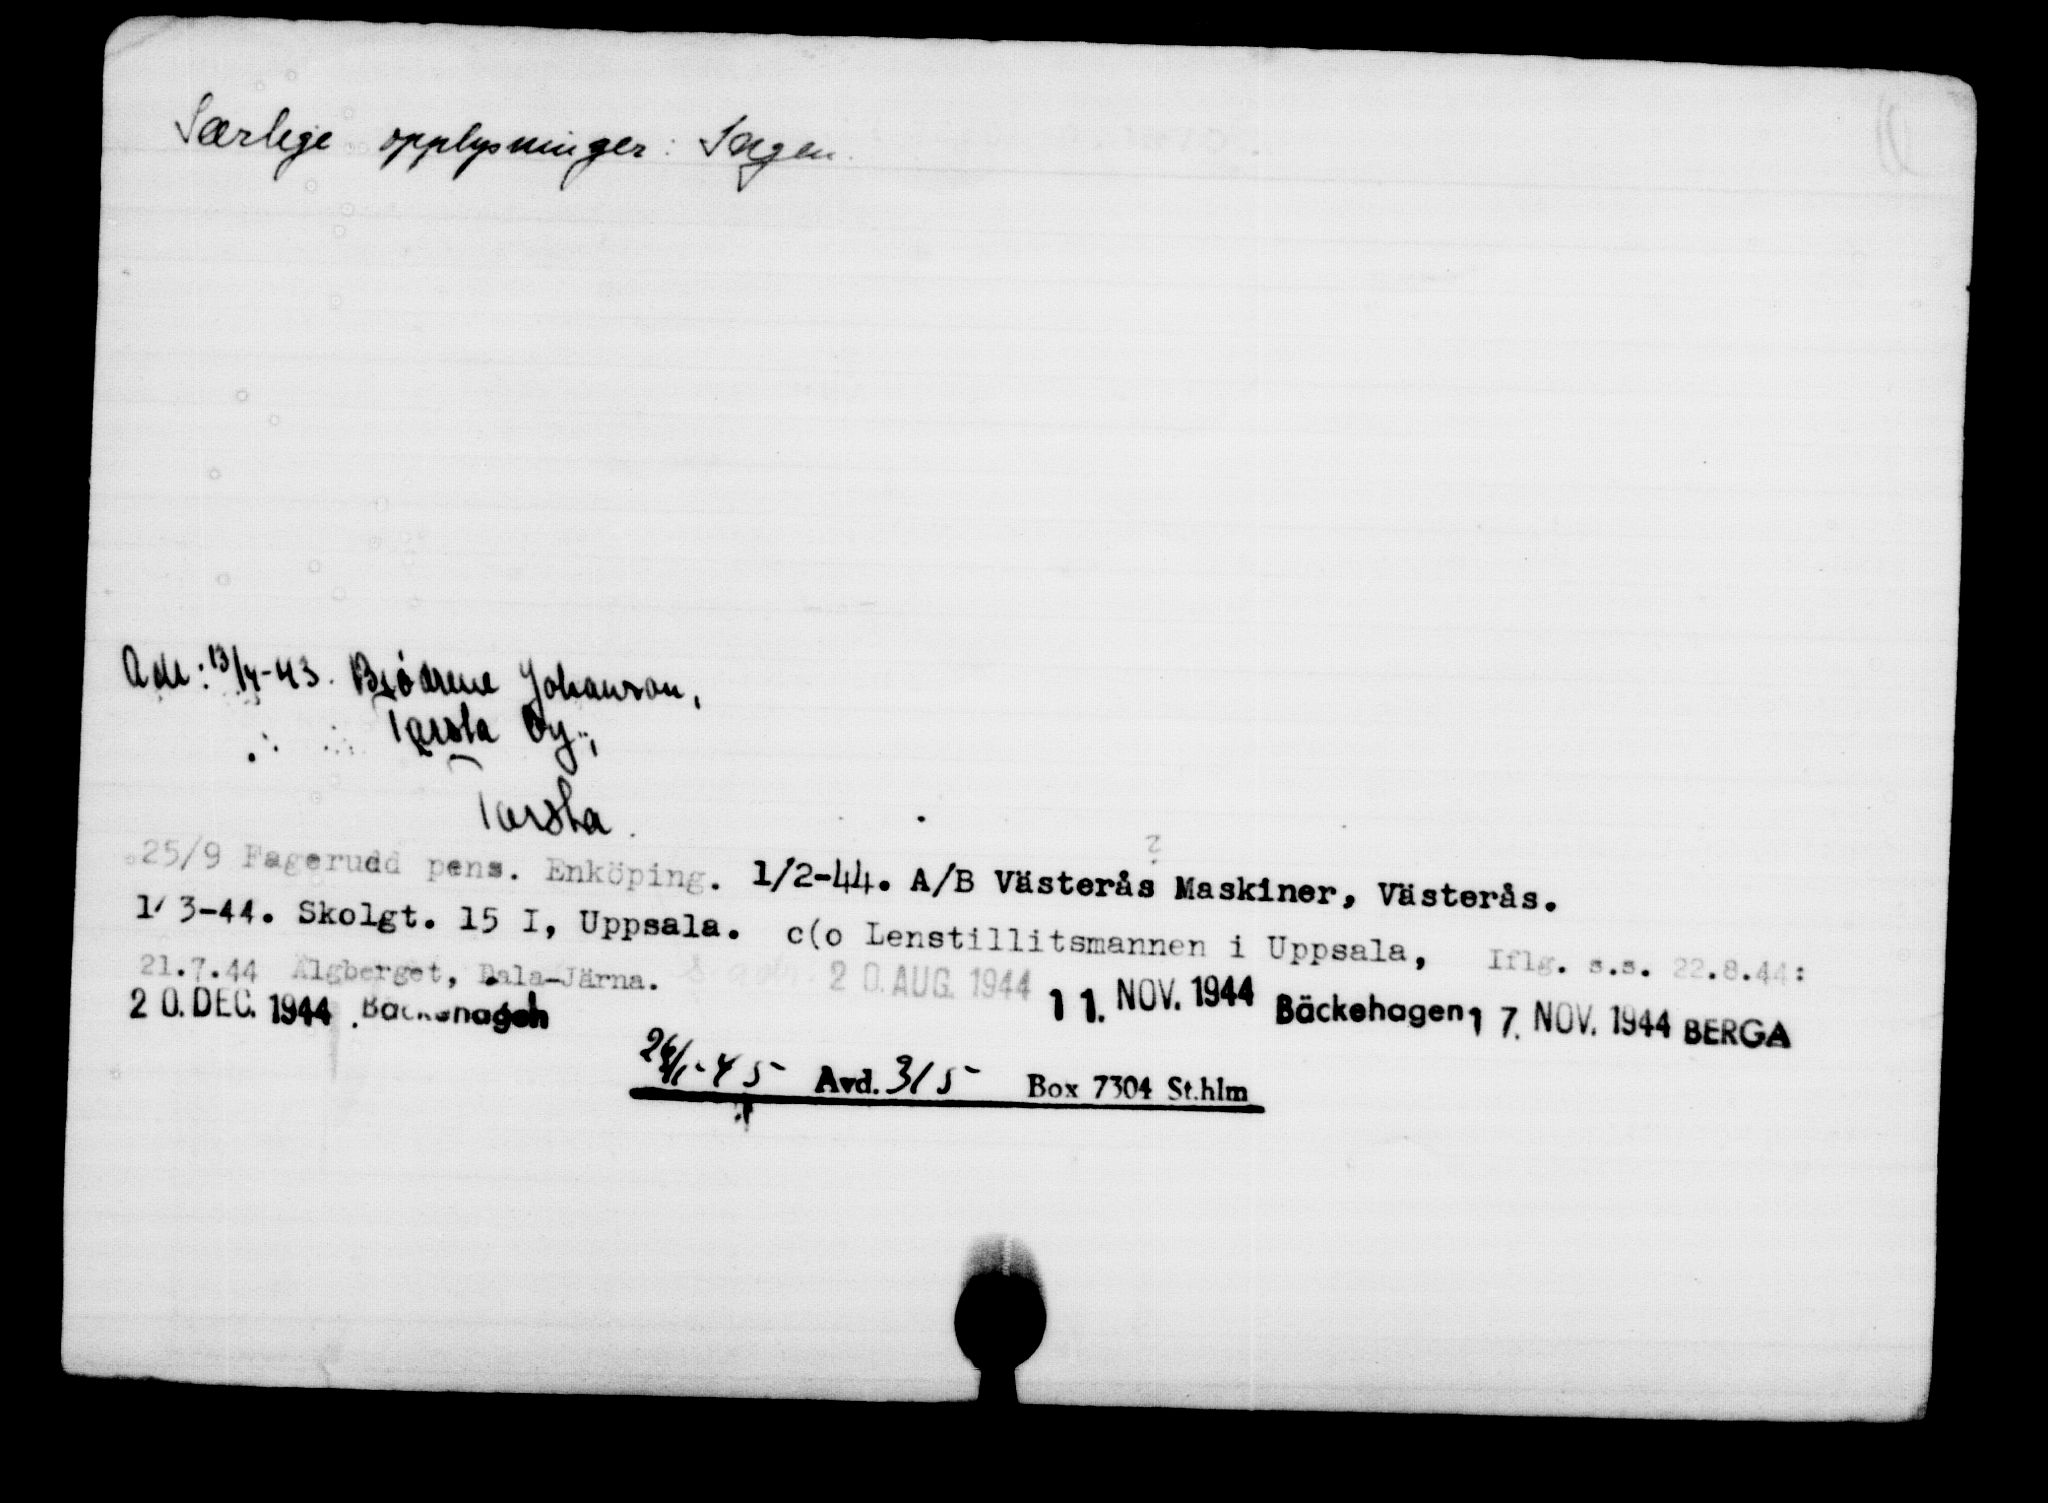 Særlige opplysninger: Ingen.
Adr: 13/4-43. Johanson,
Tarsta By,
Tarsta.
25/9 Fagerudd pens. Enköping. 1/2-44. A/B Västerås Maskiner, Västerås.
?
1/3-44. Skolgt. 15 I, Uppsala. c(o Lenstillitsmannen i Uppsala, Iflg. s.s. 22.8.44:
21.7.44 Älgberget, Dala-Järna. 20. AUG. 1944 11. NOV. 1944 Bäckehagen 17. NOV. 1944 BERGA
20. DEC. 1944 Bäckehagen
26/1-45 Avd. 3/5 Box 7304 St.hlm